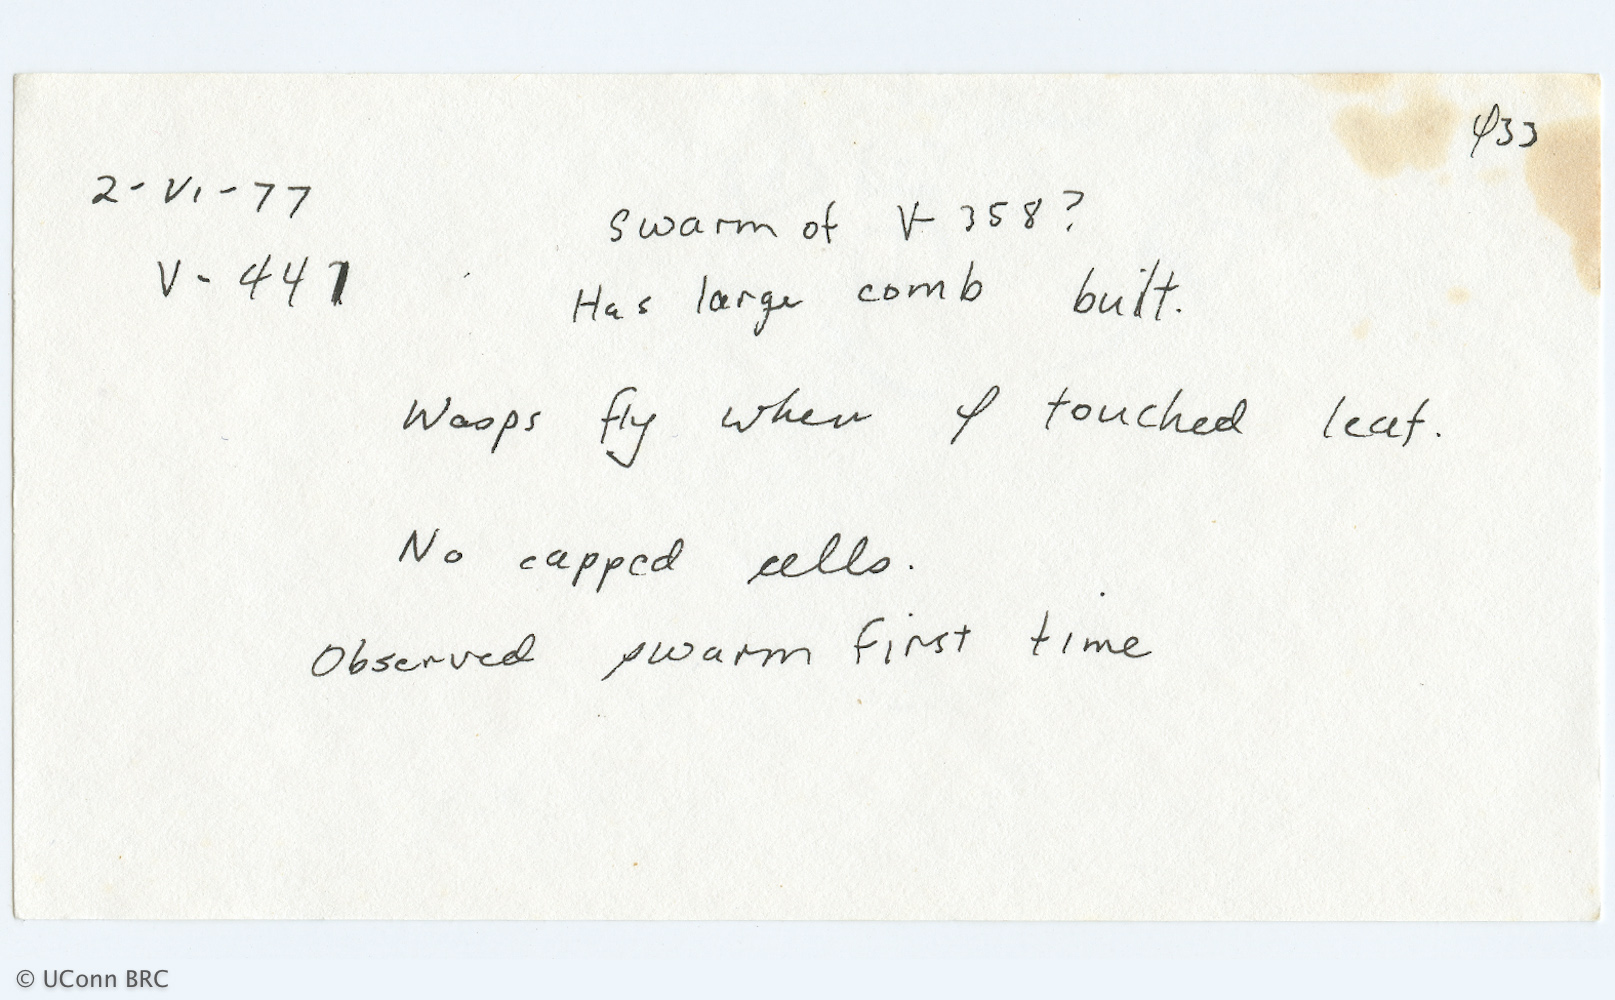 433
2-VI-77
V-447
Swarm of V-358?
Has large comb built.
Wasps fly when I touched leaf.
No capped cells.
Observed swarm first time
© UConn BRC